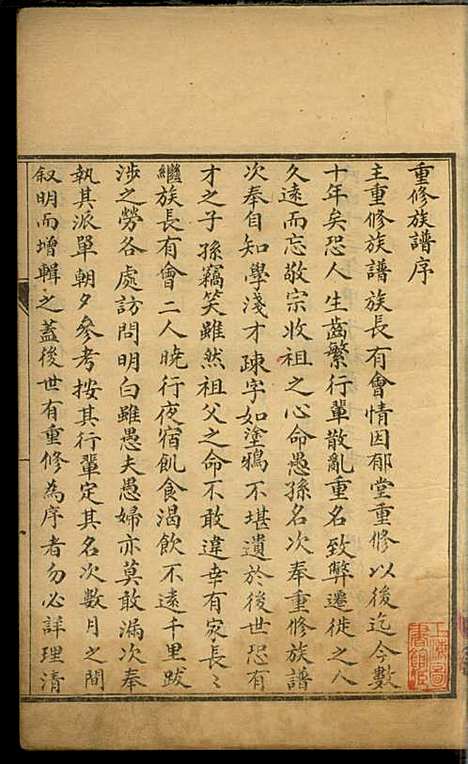 重修族譜序
主重修族譜族長有會情因郁堂重修以後迄今數
十年矣恐人生齒繁行輩散亂重名致弊遷徙之人
久遠而忘敬宗收祖之心命愚孫名次奉重修族譜
次奉自知學淺才疎字如塗鴉不堪遺於後世恐有
才之子孫竊笑雖然祖父之命不敢違幸有家長〻
繼族長有會二人曉行夜宿飢食渴飲不遠千里跋
涉之勞各處訪問明白雖愚夫愚婦亦莫敢漏次奉
執其派單朝夕參考按其行輩定其名次數月之間
叙明而增輯之蓋後世有重修為序者勿必詳理清
上海圖書館藏